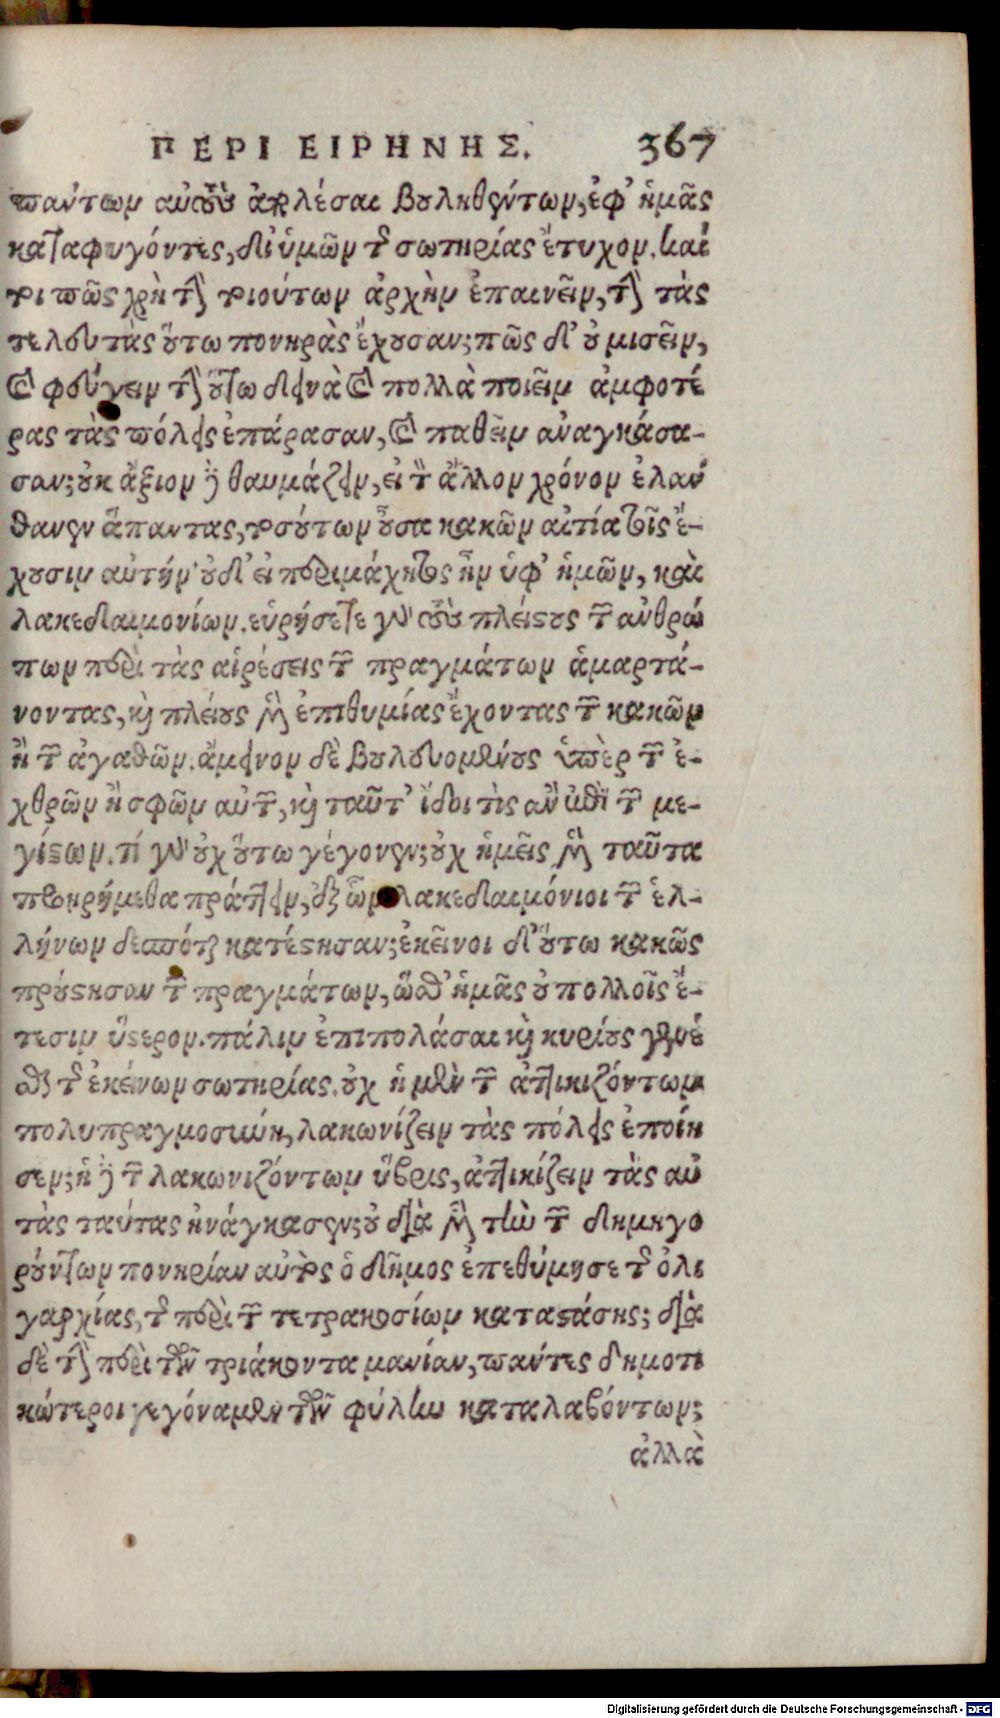 ΠΕΡΙ ΕΙΡΗΝΗΣ. 367
πάντων αὐτοὺς ἀπολέσαι βουληθέντων, ἐφ' ἡμᾶς
καταφυγόντες, δι' ὑμῶν τῆς σωτηρίας ἔτυχον. καί
τοι πῶς χρὴ τὴν τοιούτων ἀρχὴν ἐπαινεῖν, τὴν τὰς
τελευτὰς οὕτω πονηρὰς ἔχουσαν; πῶς δ' οὐ μισεῖν,
καὶ φεύγειν τὴν οὕτω δεινὰ καὶ πολλὰ ποιεῖν ἀμφοτέ
ρας τὰς πόλεις ἐπάρασαν, καὶ παθεῖν ἀναγκάσα-
σαν; οὐκ ἄξιον δὲ θαυμάζειν, εἰ τὸν ἄλλον χρόνον ἐλάν
θανεν ἅπαντας, τοσούτων οὖσα κακῶν αἰτία τοῖς ἔ-
χουσιν αὐτήν· οὐδ' εἰ περιμάχητος ἦν ὑφ' ἡμῶν, καὶ
λακεδαιμονίων. εὑρήσετε γὰρ τοὺς πλείστους τῶν ἀνθρώ
πων περὶ τὰς αἱρέσεις τῶν πραγμάτων ἁμαρτά-
νοντας, καὶ πλείους μὲν ἐπιθυμίας ἔχοντας τῶν κακῶν
ἢ τῶν ἀγαθῶν. ἄμεινον δὲ βουλευομένους ὑπὲρ τῶν ἐ-
χθρῶν ἢ σφῶν αὐτῶν, καὶ ταῦτ' ἴδοι τὶς ἂν ἐπὶ τῶν με-
γίστων. τί γὰρ οὐχ οὕτω γέγονεν; οὐχ ἡμεῖς μὲν ταῦτα
προῃρήμεθα πράττειν, ἐξ ὧν λακεδαιμόνιοι τῶν ἑλ-
λήνων δεσπόται κατέστησαν; ἐκεῖνοι δ' οὕτω κακῶς
προύστησαν τῶν πραγμάτων, ὥσθ' ἡμᾶς οὐ πολλοῖς ἔ-
τεσιν ὕστερον. πάλιν ἐπιπολάσαι καὶ κυρίους γενέ
σθαι τῆς ἐκείνων σωτηρίας. οὐχ ἡ μὲν τῶν ἀττικιζόντων
πολυπραγμοσύνη, λακωνίζειν τὰς πόλεις ἐποίη
σεν; ἡ δὲ τῶν λακωνιζόντων ὕβρις, ἀττικίζειν τὰς αὐ
τὰς ταύτας ἠνάγκασεν; οὐ διὰ μὲν τὴν τῶν δημηγο
ρούντων πονηρίαν αὐτὸς ὁ δῆμος ἐπεθύμησε τῆς ὀλι
γαρχίας, τῆς περὶ τῶν τετρακοσίων καταστάσης; διὰ
δὲ τὴν περὶ τῶν τριάκοντα μανίαν, πάντες δημοτι
κώτεροι γεγόναμεν τῶν φύλην καταλαβόντων;
ἀλλὰ
Digitalisierung gefördert durch die Deutsche Forschungsgemeinschaft - DFG